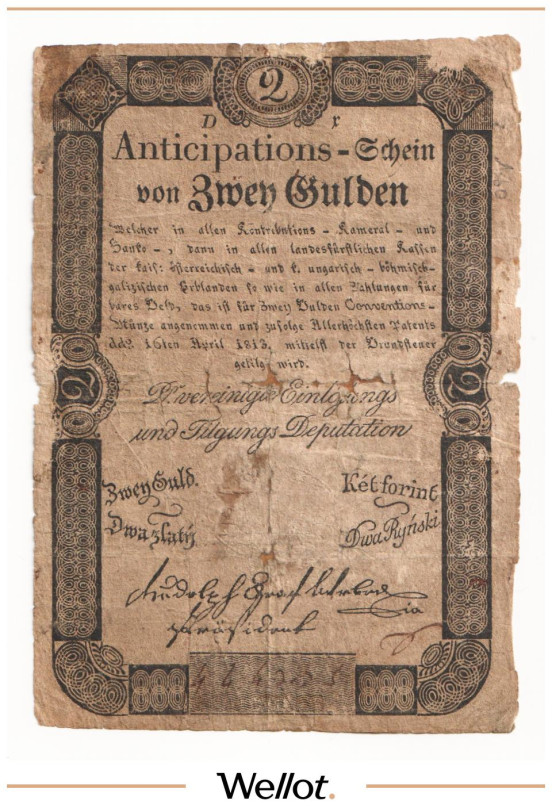 2
D r
Anticipations-Schein
von Zwey Gulden
Welcher in allen Kontributions-Kameral- und
Banko-, dann in allen landesfürstlichen Kassen
der kais: österreichisch- und k. ungarisch-böhmisch-
galizischen Erblanden so wie in allen Zahlungen für
bares Geld, das ist für Zwey Gulden Conventions-
Münze angenommen und zufolge Allerhöchsten Patents
ddº 16ten April 1813. mittelst der Grundsteuer
getilg wird.
2
2
Pr. vereinigte Einlösungs
und Tilgungs Deputation
Zwey Guld.
Két forint
Dwa zlatý
Dwa Ryński
Rudolph Graf
Präsident
Wellot.